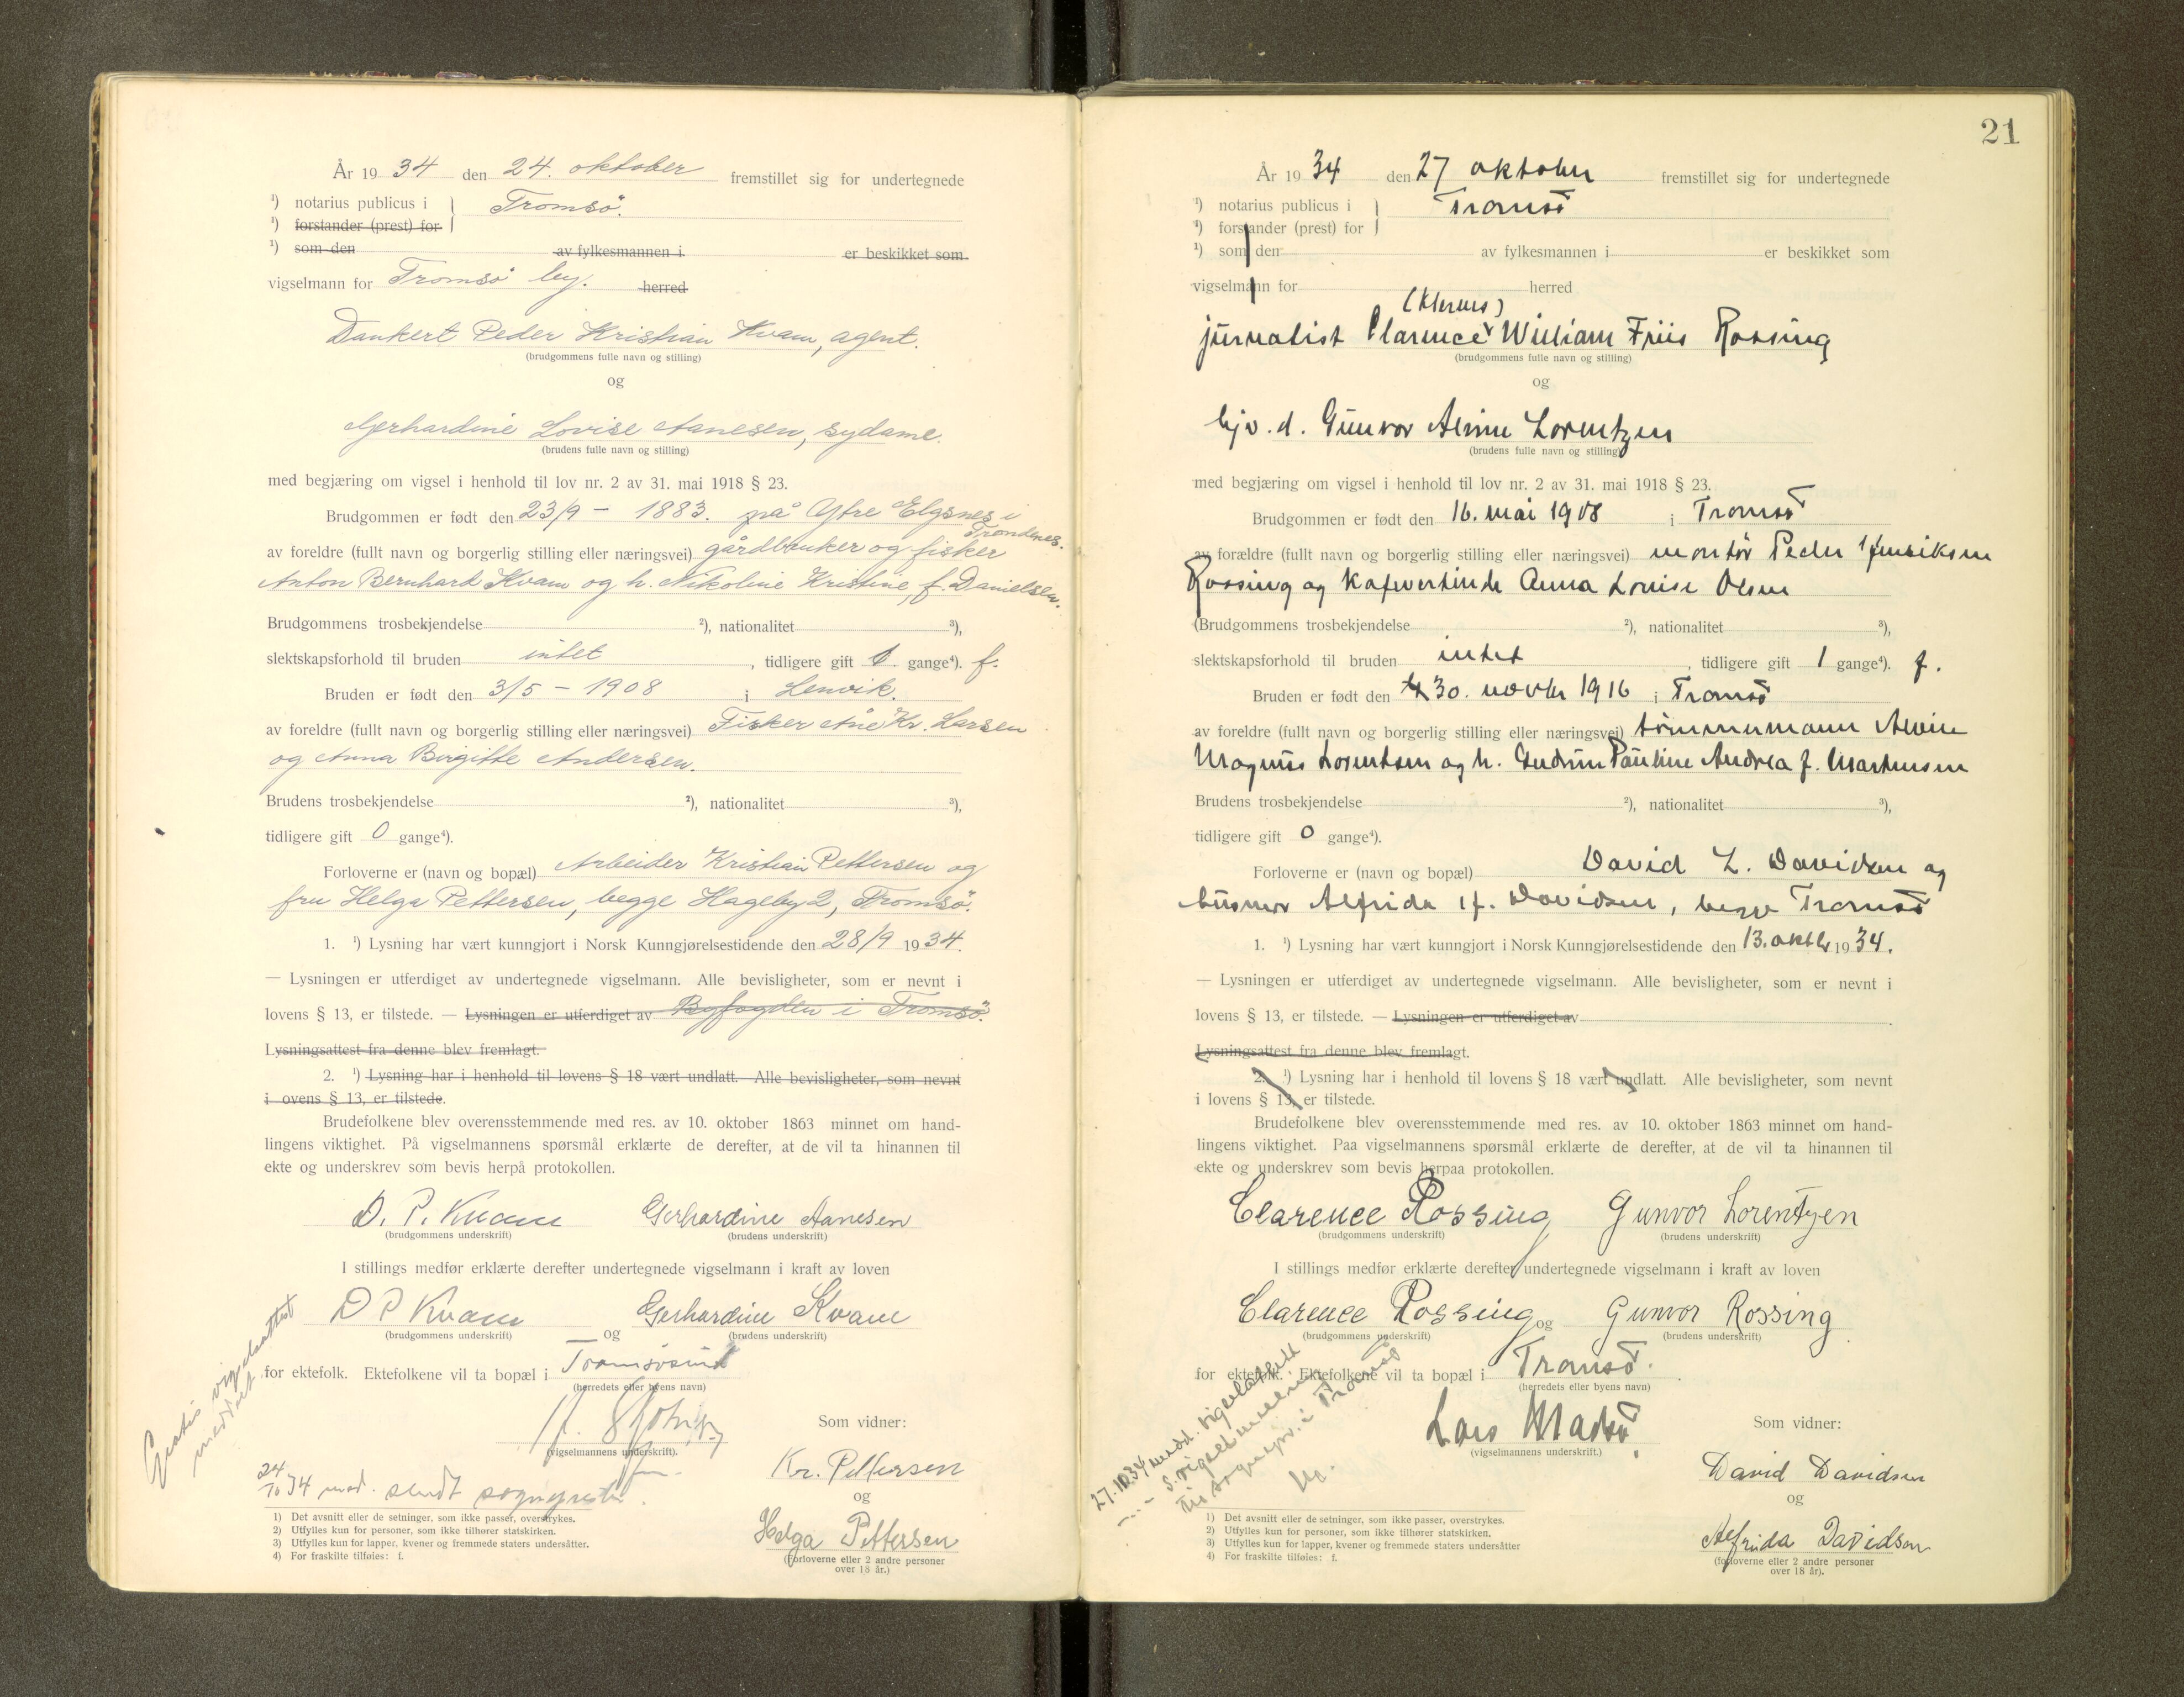 År 1934 den 24. oktober fremstillet sig for undertegnede
¹) notarius publicus i } Tromsö.
¹) forstander (prest) for
¹) som den av fylkesmannen i er beskikket som
vigselmann for Tromsö by. herred
Dankert Peder Kristian Kvam, agent.
(brudgommens fulle navn og stilling)
og
Gjerhardine Lovise Aanesen, sydame.
(brudens fulle navn og stilling)
med begjæring om vigsel i henhold til lov nr. 2 av 31. mai 1918 § 23.
Brudgommen er født den 23/9 - 1883. på Ytre Elgsnes i
Trondenes.
av foreldre (fullt navn og borgerlig stilling eller næringsvei) gårdbruker og fisker
Anton Bernhard Kvam og h. Nikoline Kristine, f. Danielsen.
Brudgommens trosbekjendelse ²), nationalitet ³),
slektskapsforhold til bruden intet, tidligere gift 1. gange⁴). f.
Bruden er født den 3/5 - 1908 i Lenvik.
av foreldre (fullt navn og borgerlig stilling eller næringsvei) Fisker Ane Kr. Larsen
og Anna Birgitte Andersen.
Brudens trosbekjendelse ²), nationalitet ³),
tidligere gift 0 gange⁴).
Forloverne er (navn og bopæl) Arbeider Kristian Pettersen og
fru Helga Pettersen, begge Hageby 2, Tromsö.
1. ¹) Lysning har vært kunngjort i Norsk Kunngjørelsestidende den 28/9 1934.
— Lysningen er utferdiget av undertegnede vigselmann. Alle bevisligheter, som er nevnt i
lovens § 13, er tilstede. — Lysningen er utferdiget av Byfogden i Tromsö.
Lysningsattest fra denne blev fremlagt.
2. ¹) Lysning har i henhold til lovens § 18 vært undlatt. Alle bevisligheter, som nevnt
i ovens § 13, er tilstede.
Brudefolkene blev overensstemmende med res. av 10. oktober 1863 minnet om hand-
lingens viktighet. På vigselmannens spørsmål erklærte de derefter, at de vil ta hinannen til
ekte og underskrev som bevis herpå protokollen.
D. P. Kvam Gerhardine Aanesen
(brudgommens underskrift) (brudens underskrift)
I stillings medfør erklærte derefter undertegnede vigselmann i kraft av loven
D P Kvam og Gerhardine Kvam
(brudgommens underskrift) (brudens underskrift)
for ektefolk. Ektefolkene vil ta bopæl i Tromsösund
(herredets eller byens navn)
Gratis vigselsattest
meddelt.
Som vidner:
(vigselmannens underskrift).
Kr. Pettersen
og
24/10 34 med. sendt sogneprest
Helga Pettersen
(Forloverne eller 2 andre personer
over 18 år.)
1) Det avsnitt eller de setninger, som ikke passer, overstrykes.
2) Utfylles kun for personer, som ikke tilhører statskirken.
3) Utfylles kun for lapper, kvener og fremmede staters undersåtter.
4) For fraskilte tilføies: f.
21
År 1934 den 27 oktober fremstillet sig for undertegnede
¹) notarius publicus i } Tromsö
¹) forstander (prest) for
¹) som den av fylkesmannen i er beskikket som
vigselmann for herred
(Klerens)
jurnalist Clarence William Friis Rossing
(brudgommens fulle navn og stilling)
og
hjv. d. Gunvor Alvine Lorentzen
(brudens fulle navn og stilling)
med begjæring om vigsel i henhold til lov nr. 2 av 31. mai 1918 § 23.
Brudgommen er født den 16. mai 1908 i Tromsö
av forældre (fullt navn og borgerlig stilling eller næringsvei) montör Peder
Rossing og kafevertinde Anna Louise Olsen
(Brudgommens trosbekjendelse ²), nationalitet ³),
slektskapsforhold til bruden intet, tidligere gift 1 gange⁴). f.
Bruden er født den 30. novbr 1916 i Tromsö
av foreldre (fullt navn og borgerlig stilling eller næringsvei) tömmermann Alvin
Magnus Lorentsen og h. Gudrun Pauline Andrea f. Martinsen
Brudens trosbekjendelse ²), nationalitet ³),
tidligere gift 0 gange⁴).
Forloverne er (navn og bopæl) David Z. Davidsen og
hustru Alfrida f. Davidsen, begge Tromsö
1. ¹) Lysning har vært kunngjort i Norsk Kunngjørelsestidende den 13. oktbr 1934.
— Lysningen er utferdiget av undertegnede vigselmann. Alle bevisligheter, som er nevnt i
lovens § 13, er tilstede. — Lysningen er utferdiget av
Lysningsattest fra denne blev fremlagt.
2. ¹) Lysning har i henhold til lovens § 18 vært undlatt. Alle bevisligheter, som nevnt
i lovens § 13, er tilstede.
Brudefolkene blev overensstemmende med res. av 10. oktober 1863 minnet om hand-
lingens viktighet. Paa vigselmannens spørsmål erklærte de derefter, at de vil ta hinannen til
ekte og underskrev som bevis herpaa protokollen.
Clarence Rossing Gunvor Lorentzen
(brudgommens underskrift) (brudens underskrift)
I stillings medfør erklærte derefter undertegnede vigselmann i kraft av loven
Clarence Rossing og Gunvor Rossing
(brudgommens underskrift) (brudens underskrift)
for ektefolk. Ektefolkene vil ta bopæl i Tromsö.
(herredets eller byens navn)
27.10.34 medd. vigselattest
- - - s. vigselmelding
til sognepr. i Tromsö
Lars Matsö.
(vigselmannens underskrift.)
Som vidner:
David Davidsen
og
Alfrida Davidsen
(forloverne eller 2 andre personer
over 18 år).
1) Det avsnitt eller de setninger, som ikke passer, overstrykes.
2) Utfylles kun for personer, som ikke tilhører statskirken.
3) Utfylles kun for lapper, kvener og fremmede staters undersåtter
4) For fraskilte tilføies: f.